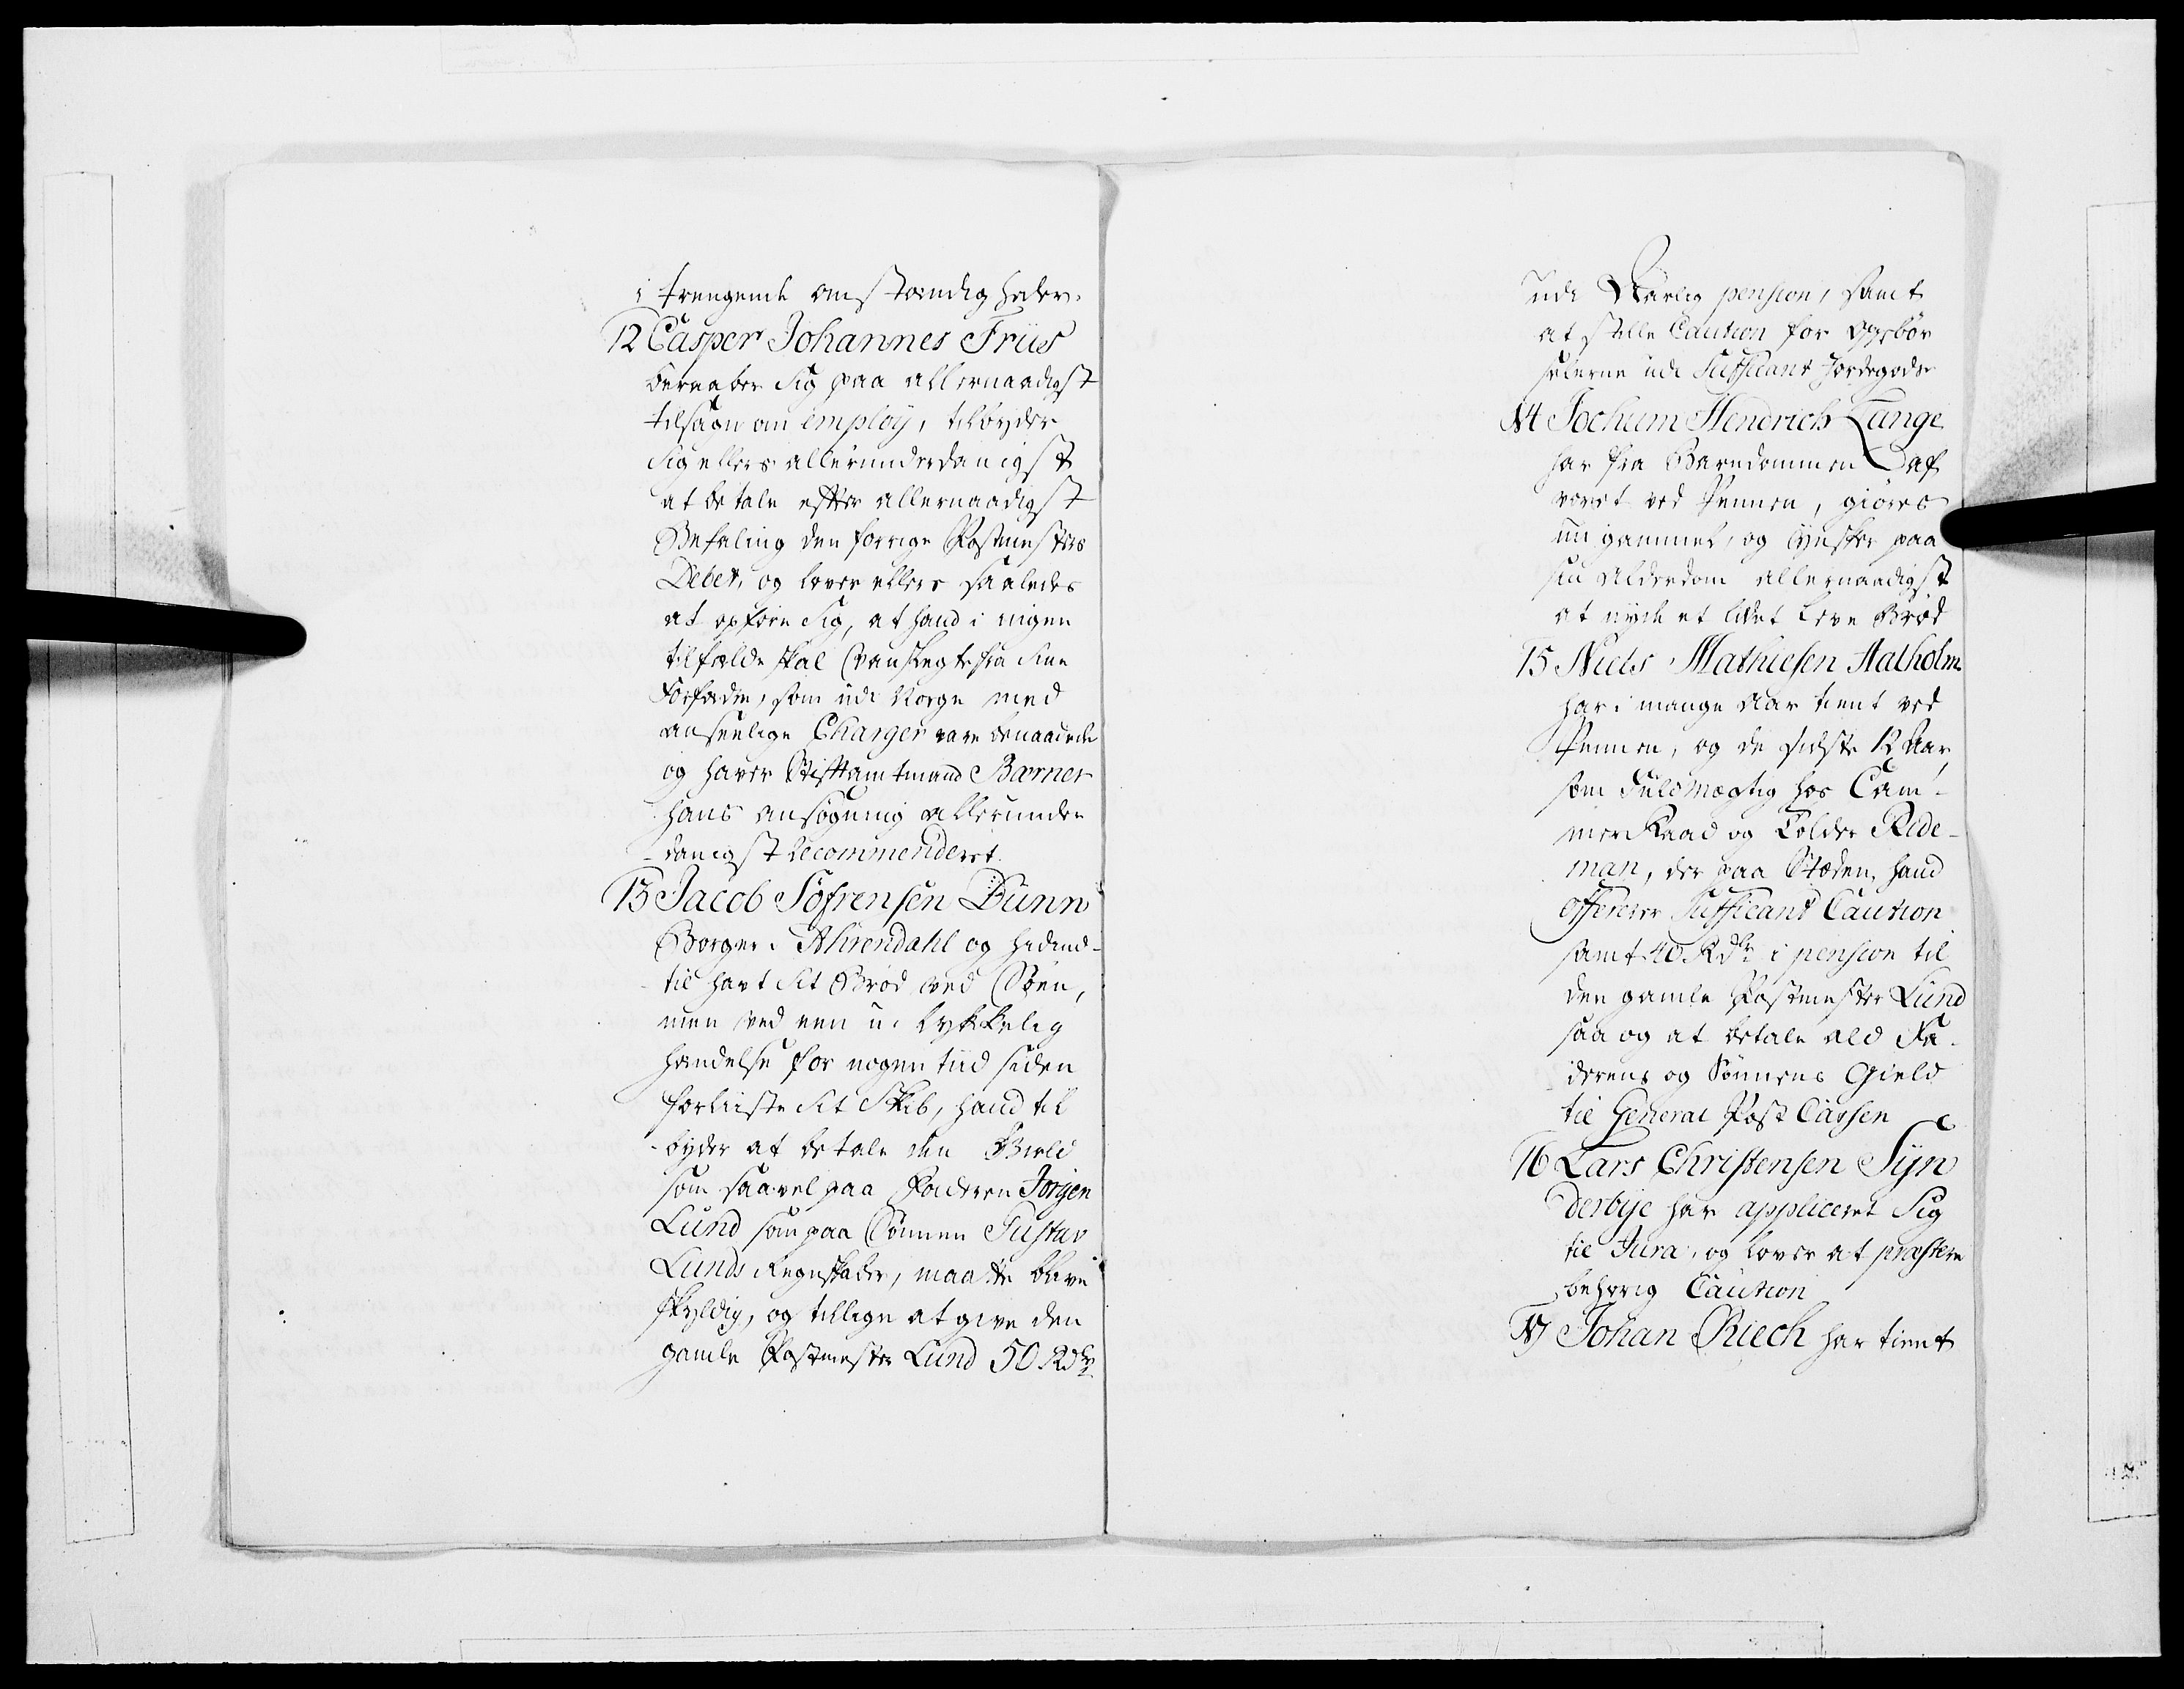 i trengende omstændigheder.
12 Casper Johannes Friis
beraaber sig paa allernaadigst
tilsagn om employ, tilbyder
sig ellers allerunderdanigst
at betale efter allernaadigst
Befaling den forrige Postmesters
Debet, og lover ellers saaledes
at opføre sig, at hand i ingen
tilfælde skal vanslegte fra sine
Forfædre, som udi Norge med
anseelige Charger vare benaadede
og haver Stiftamtmand Bærner
hans ansøgning allerunder
danigst recommenderet.
13 Jacob Søfrensen Dünn
Borger i Ahrendahl og hidind-
til havt sit Brød ved Søen,
men ved een u-lykkelig
hændelse for nogen tiid siden
forliiste sit Skib, hand til
byder at betale den Gield
som saavel paa Faderen Jørgen
Lund som paa Sønnen Gustav
Lunds Regnskaber, maatte blive
skyldig, og tillige at give den
gamle Postmester Lund 50 Rdlr
udi Aarlig pension, samt
at stille Caution for Oppebør
selerne udi Sufficant Jordegods
14 Jochum Hendrich Lange
har fra Barndommen af
været ved Pennen, giøres
nu gammel, og ønsker paa
sin Alderdom allernaadigst
at nyde et lidet Leve Brød
15 Niels Mathiesen Aalholm
har i mange Aar tient ved
Pennen, og de sidste 12 Aar
som Fuldmægtig hos Cam-
mer Raad og Tolder Rede-
man, der paa Stæden, hand
offererer Sufficant Caution
samt 40 Rdlr i pension til
den gamle Postmester Lund
saa og at betale ald Fa-
derens og Sønnens Gield
til General Post Cassen
16 Lars Christensen Syn
derbye har appliceret sig
til Jura, og lover at præstere
behørig Caution
17 Johan Riech har tient